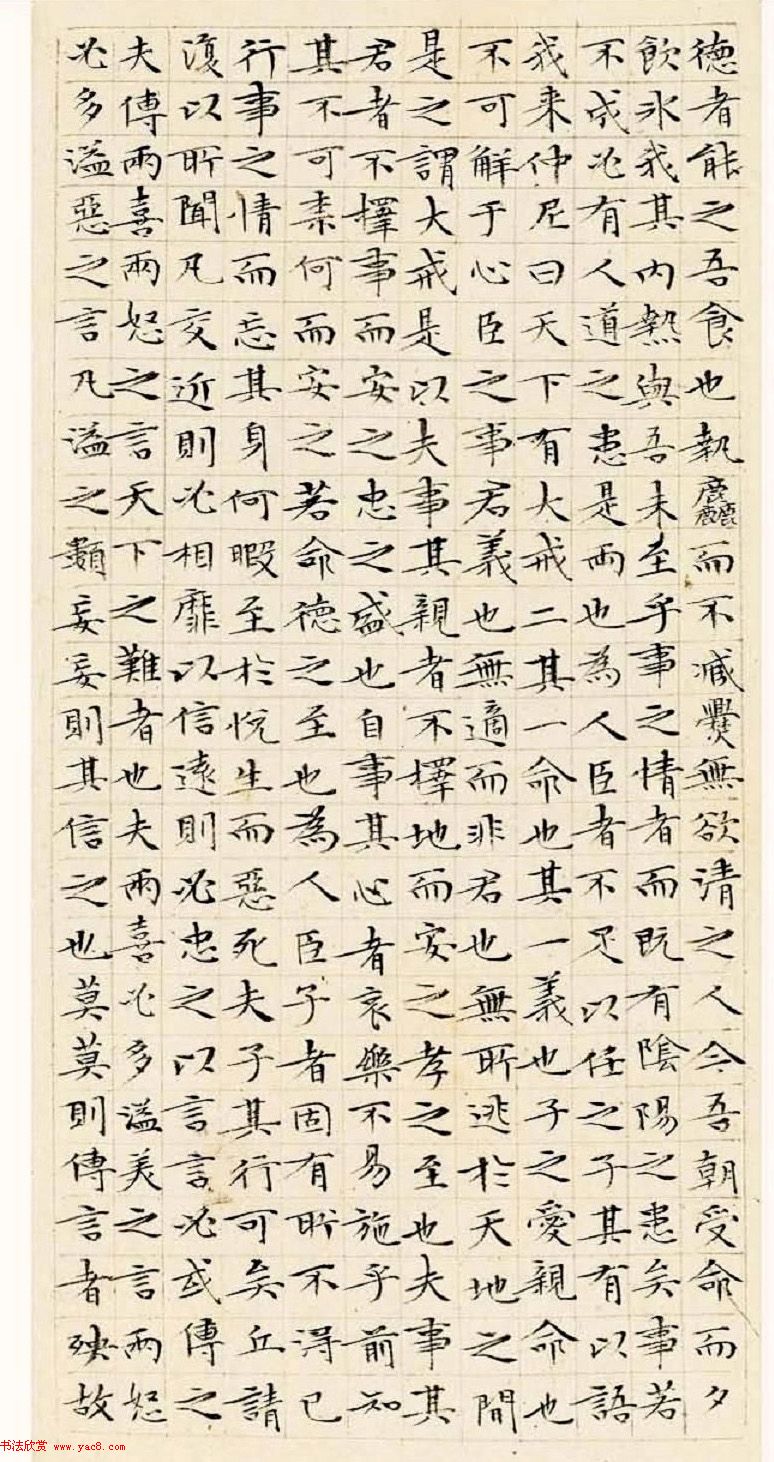 德者能之吾食也執麤而不臧爨無欲清之人今吾朝受命而夕
飲冰我其內熱與吾未至乎事之情者而既有陰陽之患矣事若
不成必有人道之患是兩也為人臣者不足以任之子其有以語
我来仲尼曰天下有大戒二其一命也其一義也子之愛親命也
不可解于心臣之事君義也無適而非君也無所逃於天地之間
是之謂大戒是以夫事其親者不擇地而安之孝之至也夫事其
君者不擇事而安之忠之盛也自事其心者哀樂不易施乎前知
其不可柰何而安之若命德之至也為人臣子者固有所不得已
行事之情而忘其身何暇至於悅生而惡死夫子其行可矣丘請
復以所聞凡交近則必相靡以信遠則必忠之以言言必或傳之
夫傳兩喜兩怒之言天下之難者也夫兩喜必多溢美之言兩怒
必多溢惡之言凡溢之類妄妄則其信之也莫莫則傳言者殃故
书法欣赏 www.yac8.com